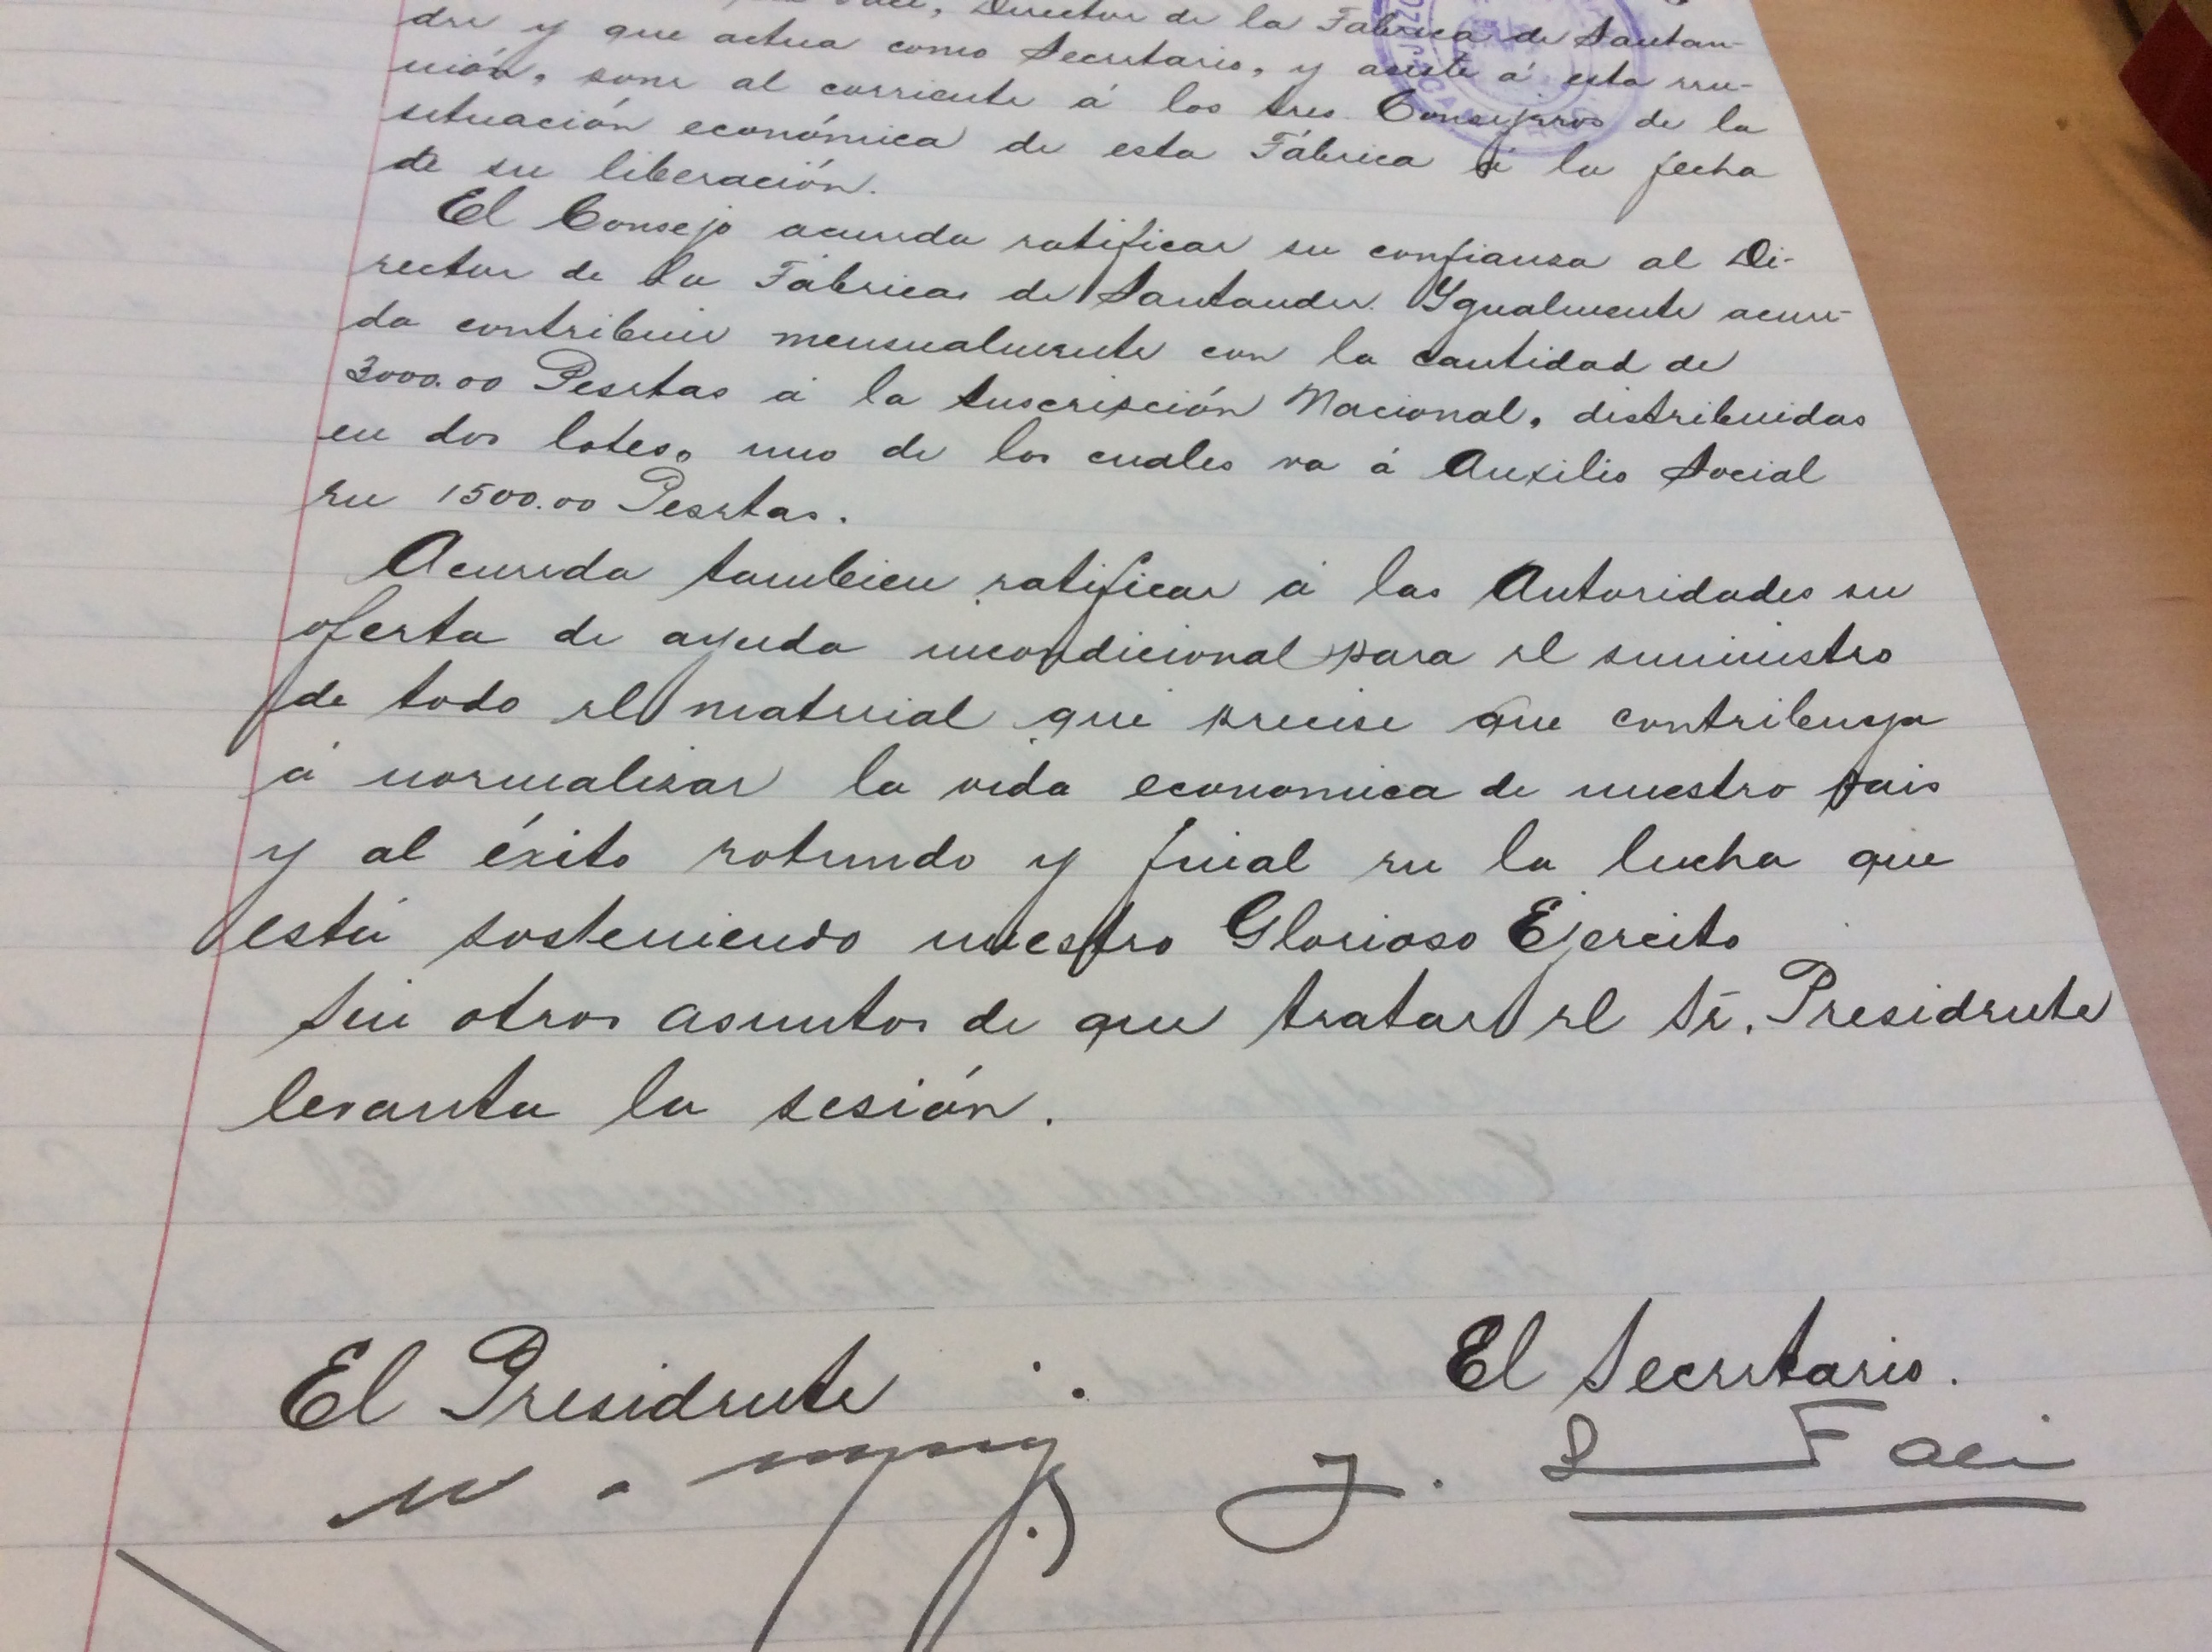 Director de la Fabrica de Santan-
der y que actua como Secretario, y asiste á esta reu-
nión, pone al corriente á los tres Consejeros de la
situación económica de esta Fábrica á la fecha
de su liberación.
El Consejo acuerda ratificar su confianza al Di-
rector de la Fábrica de Santander. Ygualmente acuer-
da contribuir mensualmente con la cantidad de
3000.00 Pesetas á la Suscripción Nacional, distribuidas
en dos lotes, uno de los cuales va á Auxilio Social
en 1500.00 Pesetas.
Acuerda tambien ratificar á las Autoridades su
oferta de ayuda incondicional para el suministro
de todo el material que precise que contribuya
á normalizar la vida economica de nuestro pais
y al éxito rotundo y final en la lucha que
está sosteniendo nuestro Glorioso Ejercito
Sin otros asuntos de que tratar el Sr. Presidente
levanta la sesión.
El Presidente
El Secretario.